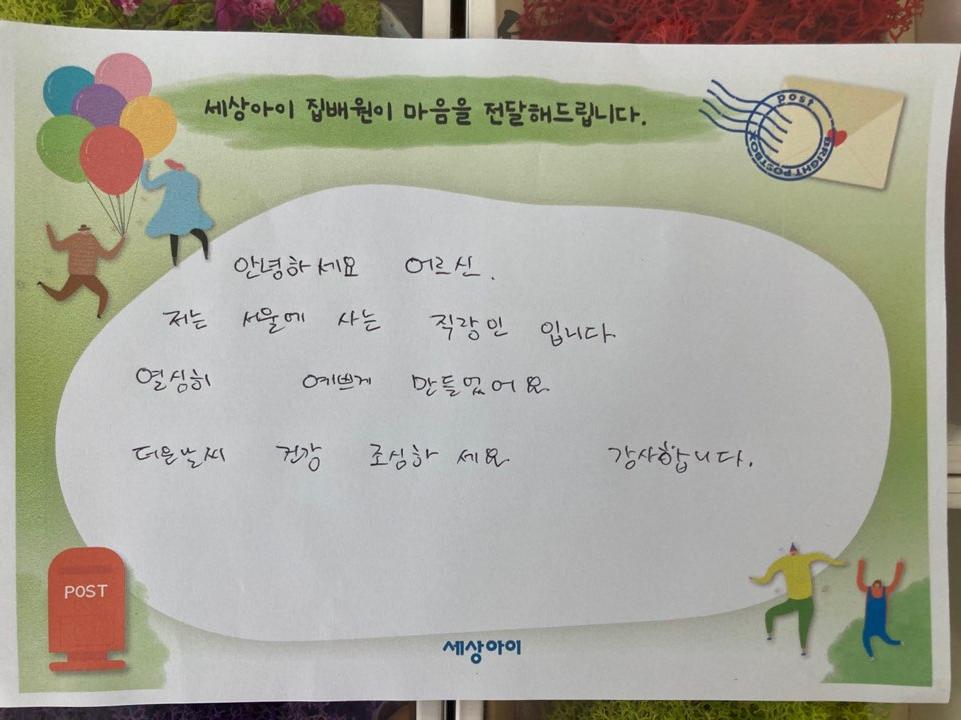 세상아이 집배원이 마음을 전달해드립니다.
post
BRIGHT POSTBOX
안녕하세요 어르신.
저는 서울에 사는 직장인 입니다.
열심히 예쁘게 만들었어요
더운날씨 건강 조심하세요 감사합니다.
POST
세상아이